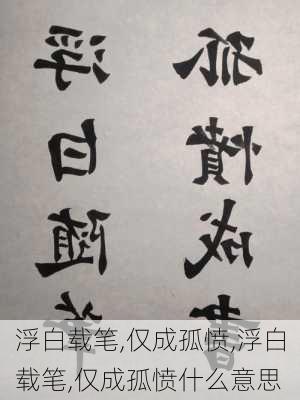 浮白随
孤憤成書
浮白载笔,仅成孤愤,浮白
载笔,仅成孤愤什么意思